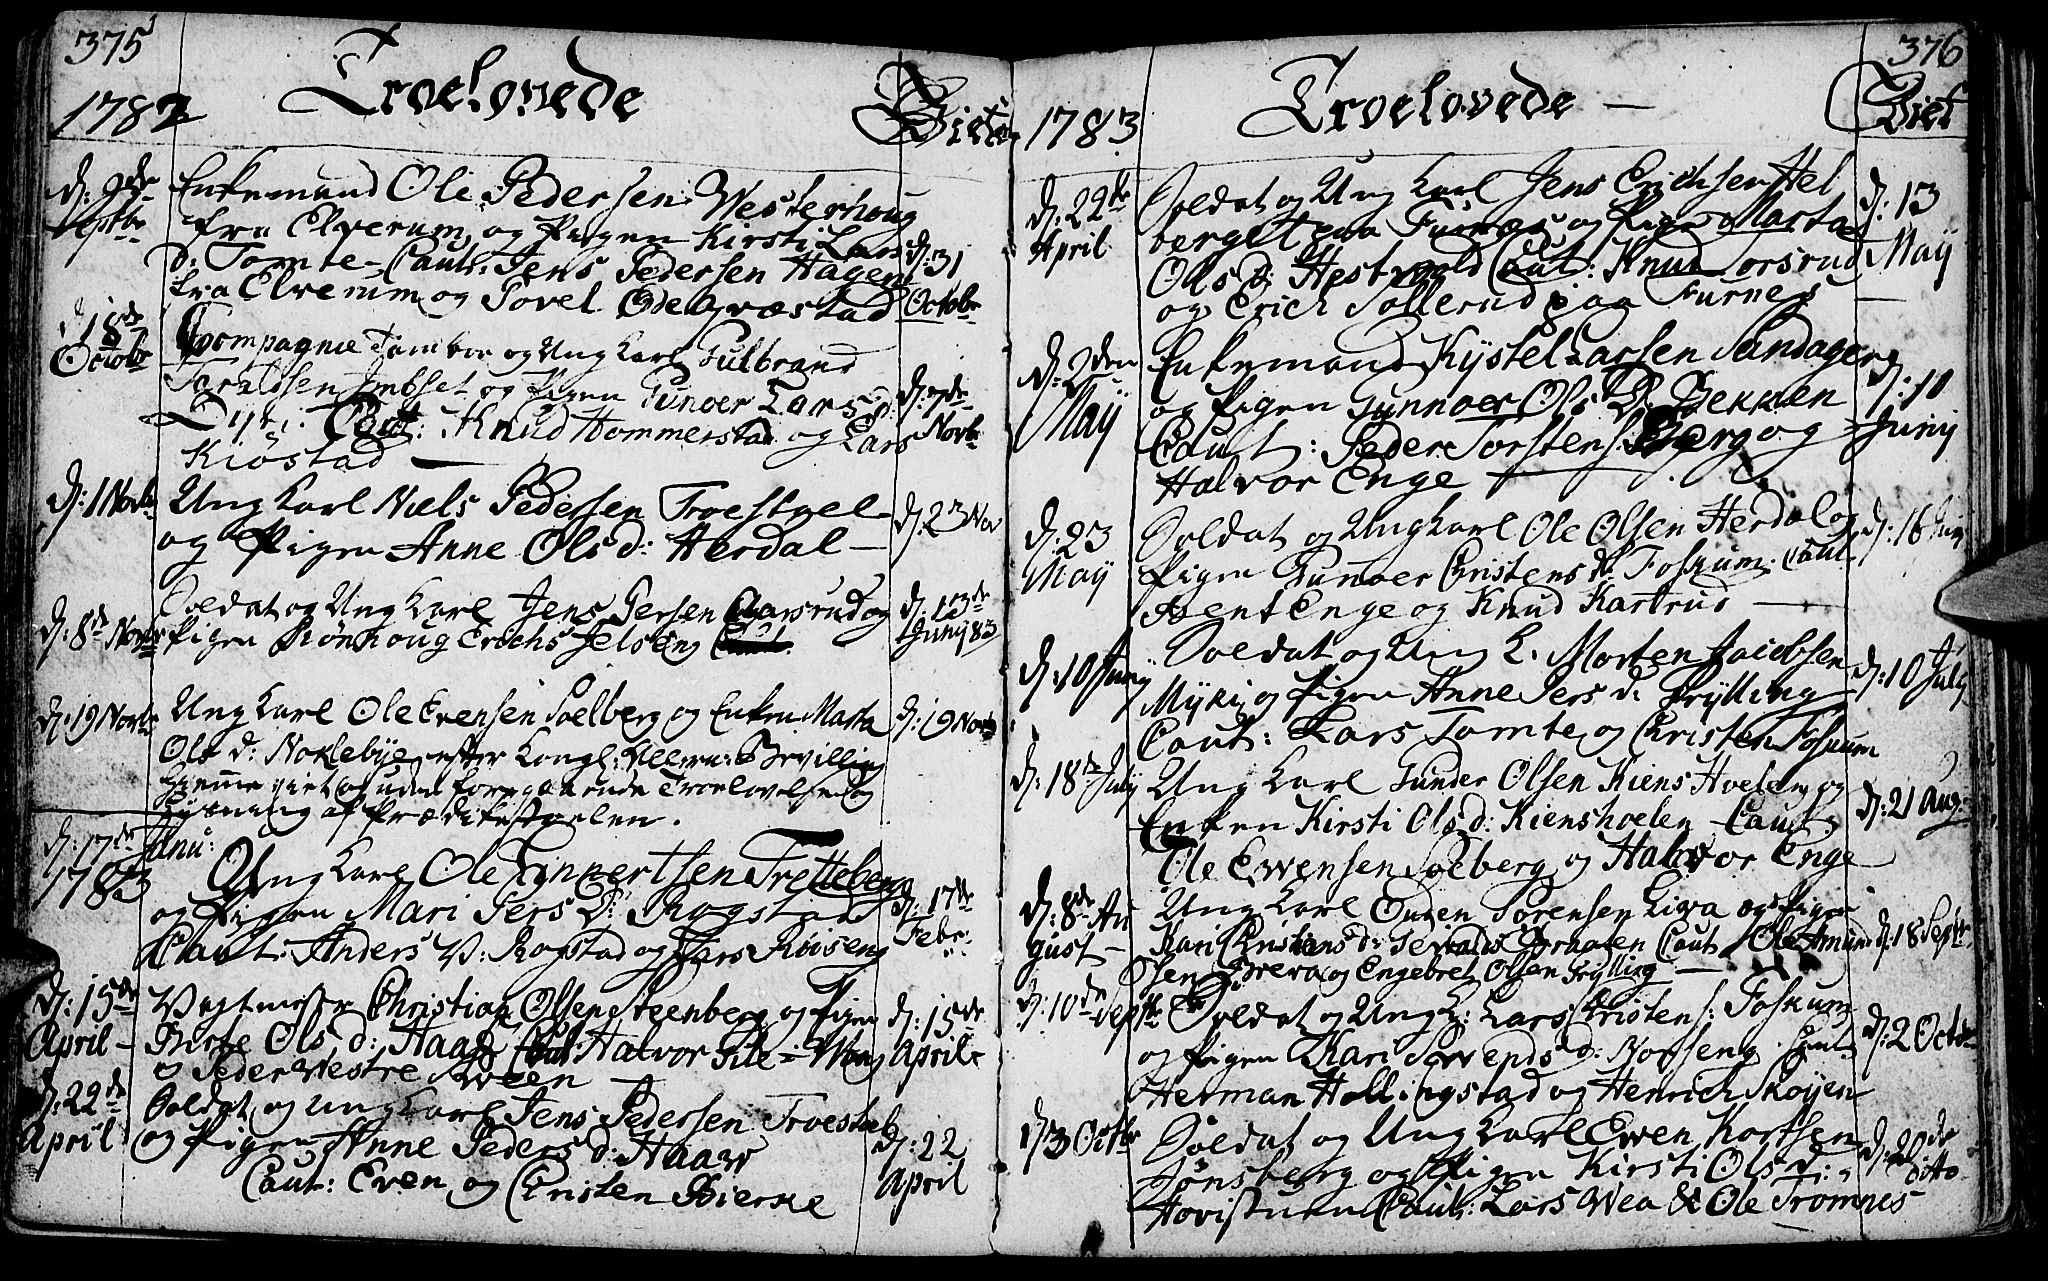 375
Troelovede
1782
Vietæ
d: 2de Septbr
Enkemand Ole Pedersen Westerhoug
fra Elverum og Pigen Kirsti Lars
d: Tomte – Caut: Jens Pedersen Hagen
fra Elverum og Povel Ødegræstad
d: 31 Octobr
d: 18de Octobr
Compagnie Tambor og Ung Karl Gulbrand
Taraldsen Imbset og Pigen Gunoer Lars d:
Caut: Knud Hommerstad og Lars
Kiøstad
d: 7de Novb
d: 1 Novbr
Ung Karl Niels Pedersen Troestvel
og Pigen Anne Ols d: Herdal
d: 23 Nov
d: 8de Novbr
Soldat og Ung Karl Jens Persen Clarsrud og
Pigen Rönnoug Erichs Jelseng Caut.
d: 13de Junij 83
d: 19 Novbr
Ung Karl Ole Evensen Soelberg og Enken Marta
Ols d: Noklebye efter Kongl: Allern: Bevilling
hjemme viet og uden foregaaende Troelovelse og
Lysning af Prædikestoelen.
d: 19 Novb
d: 17de Janu:
1783
Ung Karl Ole Finnertsen Fretteberg
og Pigen Mari Pers D: Rogstad
Caut: Anders V: Rogstad og Lars Röiseng
d: 17de Febr:
d: 15de April
Vagtmester Christian Olsen Steenberg og Pigen
Birte Ols d: Haag Caut: Halvor Pile = Moug
o Peder Westre Sveen
d: 15de April
d: 22de April
Soldat og Ung Karl Jens Pedersen Troestvel
og Pigen Anne Peders d: Haaw
Caut: Even og Christen Bierke
d: 22 April
376
1783
Troelovede
Viet
d: 22de April
Soldat og Ung Karl Jens Erichsen Hel
berget paa Furnæs og Pigen Marta
Ols d: Hestvold Caut: Knud Torsrud
og Erich Sollerud paa Furnes
d: 13 Maij
d: 2den Maij
Enkemand Kystel Larsen Sandager
og Pigen Gunnoer Ols D: Bekken
Caut: Peder Torstens: Berg og
Halvor Enge
d: 10 Junij
d: 23 Maij
Soldat og Ung Karl Ole Olsen Herdal og
Pigen Gunoer Christens d: Foskum. Caut
Bent Enge og Knud Kastrud
d: 16 Junj
d: 10 Junij
Soldat og Ung K. Morten Jacobsen
Myhr og Pigen Anne Pers d: Frylling
Caut: Lars Tomte og Christen Foskum
d: 10 July
d: 18de July
Ung Karl Gunder Olsen Kiens Hoelen og
Enken Kirsti Ols d: Kienshoelen Caut:
Ole Ewensen Soeberg og Halvor Enge
d: 21 Aug:
d: 8de August
Ung Karl Enden Sörensen Liwa og Pigen
Kari Cristens d: Caut Ole Amund
Olsen Græva og Engebret Olsen Frylling
d: 18 Septr
d: 10de Septbr
Soldat og Ung K: Lars Christens: Foskum
og Pigen Kari Svends d: Norseng. Caut:
Herman Hollingstad og Henrich Skoyen
d: 2 Octobr
d: 3 Octbr
Soldat og Ung Karl Ewen Kortsen
Jönsberg og Pigen Kirsti Ols d:
Hovistuen Caut: Lars Wea & Ole Tromnes
d: 20de ditto